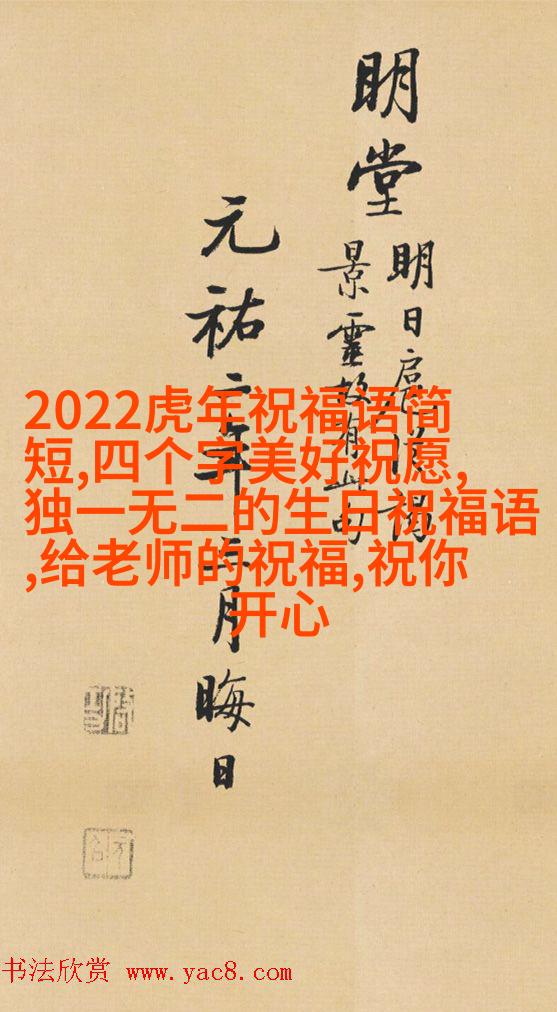 明堂
明日
景靈故有此
元祐二年月晦日
2022虎年祝福语简
短,四个字美好祝愿,
独一无二的生日祝福语
,给老师的祝福,祝你
开心
书法欣赏 www.yac8.com